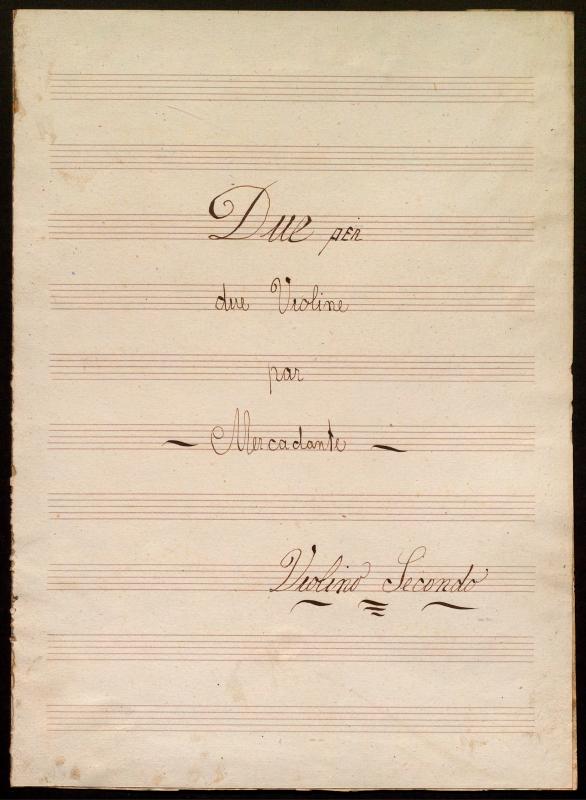 Due per
due Violine
par
Mercadante
Violino Secondo